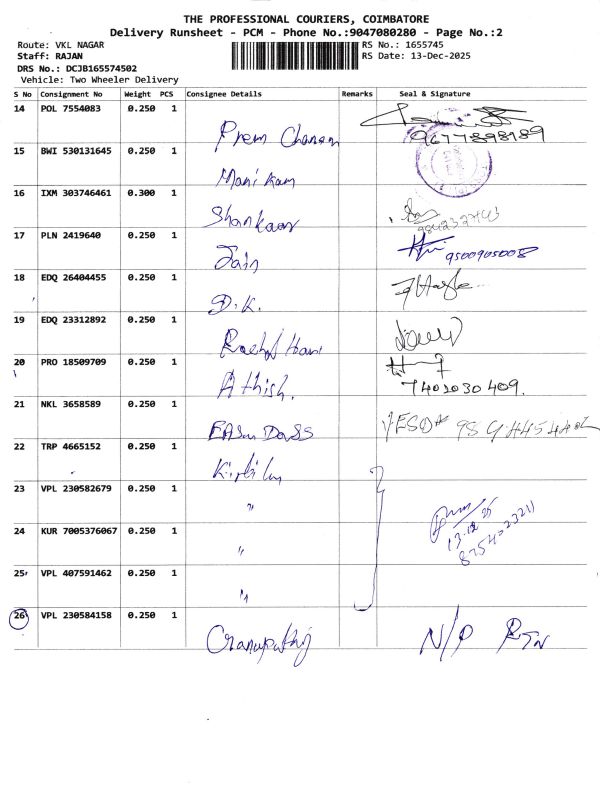 THE PROFESSIONAL COURIERS, COIMBATORE
Delivery Runsheet - PCM - Phone No.:9047080280 - Page No.:2
Route: VKL NAGAR
RS No.: 1655745
Staff: RAJAN
RS Date: 13-Dec-2025
DRS No.: DCJB165574502
Vehicle: Two Wheeler Delivery
S No Consignment No Weight PCS Consignee Details Remarks Seal & Signature
14 POL 7554083 0.250 1 Prem 9677898189
15 BWI 530131645 0.250 1 Mani
16 IXM 303746461 0.300 1
17 PLN 2419640 0.250 1 Jain 9500905008
18 EDQ 26404455 0.250 1 D.K.
19 EDQ 23312892 0.250 1
20 PRO 18509709 0.250 1 Athish. 7402030409.
21 NKL 3658589 0.250 1
22 TRP 4665152 0.250 1
23 VPL 230582679 0.250 1 "
24 KUR 7005376067 0.250 1 " 13.12.25
25 VPL 407591462 0.250 1 "
26 VPL 230584158 0.250 1 N/P RTN